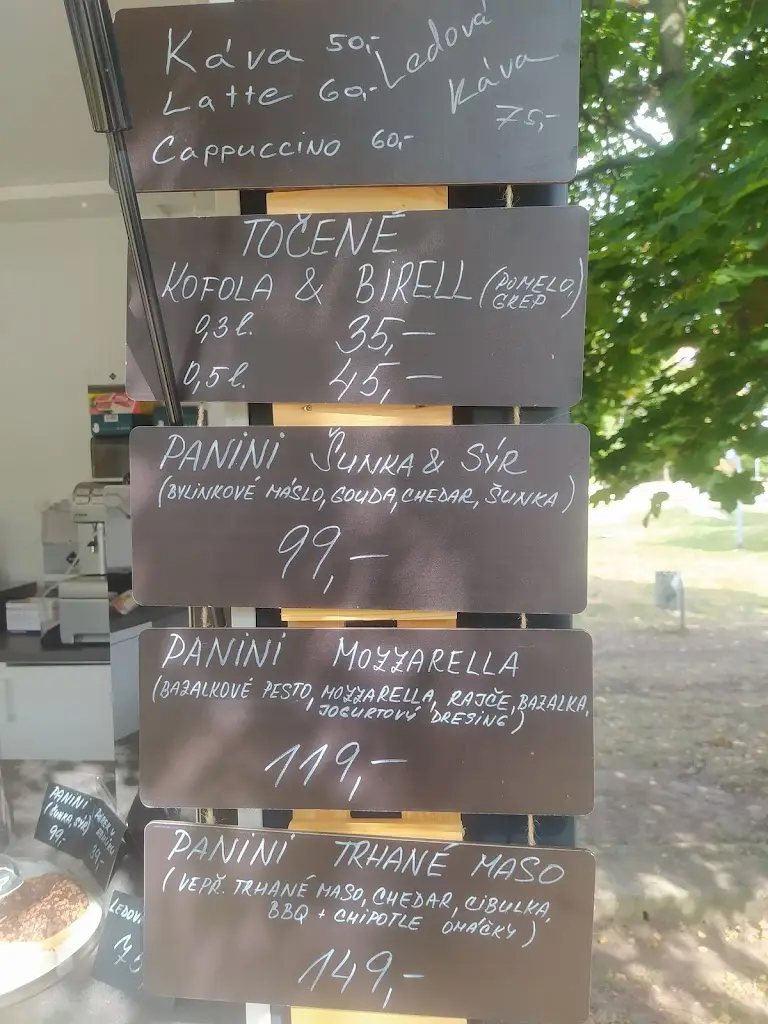 Káva 50,-
Ledová
Káva
75,-
Latte 60,-
Cappuccino 60,-
TOČENÉ
KOFOLA & BIRELL (POMELO,
GREP)
0,3l. 35,-
0,5l. 45,-
PANINI ŠUNKA & SÝR
(BYLINKOVÉ MÁSLO, GOUDA, CHEDAR, ŠUNKA)
99,-
PANINI MOZZARELLA
(BAZALKOVÉ PESTO, MOZZARELLA, RAJČE, BAZALKA,
JOGURTOVÝ DRESING)
119,-
PANINI TRHANÉ MASO
(VEPŘ. TRHANÉ MASO, CHEDAR, CIBULKA,
BBQ + CHIPOTLE OMÁČKY)
149,-
PANINI
(ŠUNKA, SÝR)
99,-
LEDOV